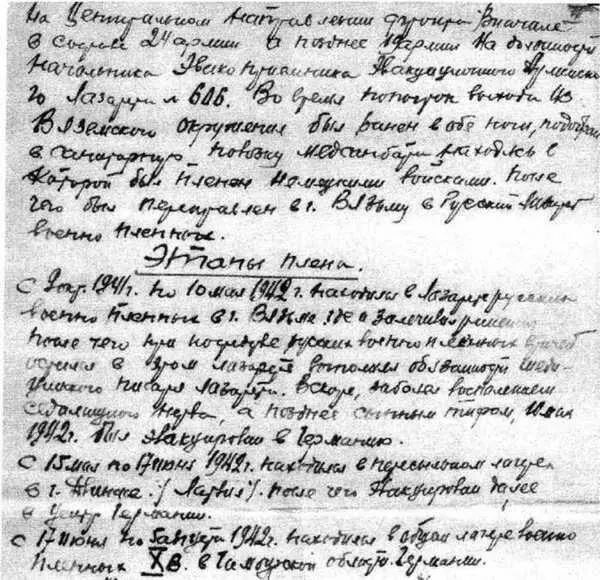 на Центральном направлении фронта вначале
в составе 24 армии а позднее 19 армии на должности
начальника Эвакоприемника Эвакуационного
го Лазарета № 606. Во время попыток выхода из
Вяземского окружения был ранен в обе ноги,
в санитарную повозку медсанбата находясь в
которой был пленен немецкими войсками. После
чего был переправлен в г. Вязьму в Русский Лазарет
военно пленных.
Этапы плена.
С 9 окт. 1941г. по 10 мая 1942г. находился в Лазарете русских
военно пленных в г. Вязьма где и залечивал ранения
после того при посредстве русских военно пленных врачей
остался в этом лазарете выполняя обязанности меди-
цинского писаря Лазарета. Вскоре, заболел воспалением
седалищного нерва, а позднее сыпным тифом, 10 мая
1942г. был эвакуирован в Германию.
С 15 мая по 17 июня 1942г. находился в пересыльном лагере
в г. Двинске /Латвия/. после чего эвакуирован далее
в центр Германии.
С 17 июня по 5 августа 1942г. находился в общем лагере военно
пленных XВ. в области Германии.